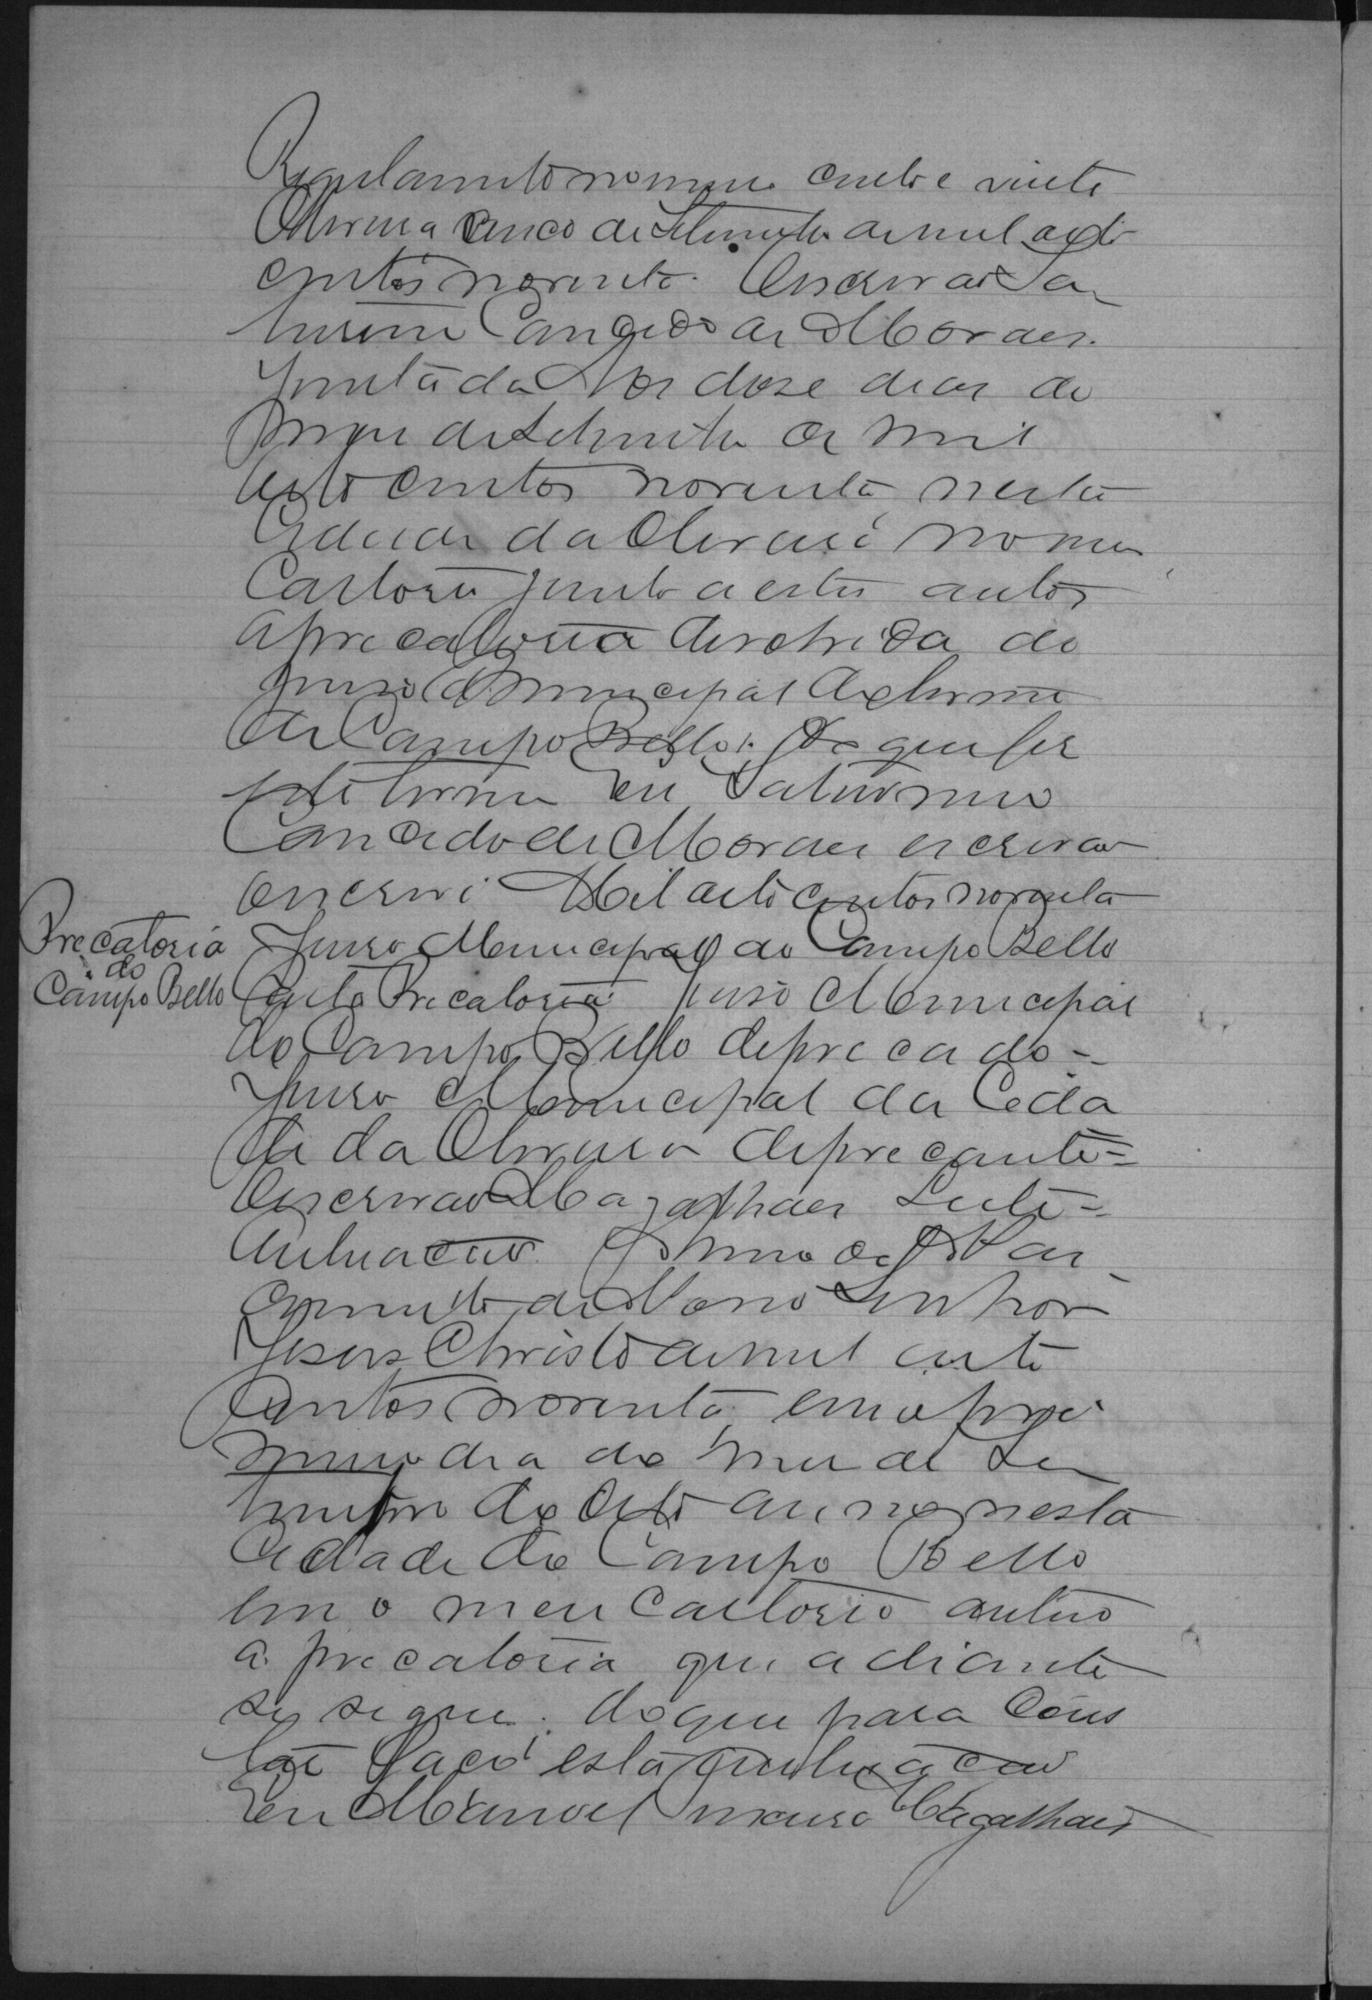 Regulamento numero cento e vinte
Oliveira cinco de Setembro de mil e oito
centos noventa. Escrivão Sa
turnino Candido de Moraes.
Juntada Aos dose dias do
mez de Setembro de mil
oito centos noventa nesta
Cidade da Oliveira e no meu
Cartorio junto a estes autos
a precatoria devolvida do
Juizo Municipal do termo
do Campo Bello. Do que fiz
este termo Eu Saturnino
Candido de Moraes escrivão
escrevi Mil oito centos noventa
Precatoria
do
Campo Bello
Juizo Municipal do Campo Bello
Carta Precatoria Juizo Municipal
do Campo Bello deprecado =
Juizo Municipal da Cida
de da Oliveira deprecante =
Escrivão Magalhães Leite =
Autuação Anno do Nas
cimento de Nosso Senhor
Jesus Christo de mil oito
centos noventa, em o pri
meiro dia do mez de Se
tembro do dito anno nesta
Cidade do Campo Bello
em o meu Cartorio autuo
a precatoria que adiante
se segue. do que para cons
tar faço esta autuação
Eu Manoel Magalhães